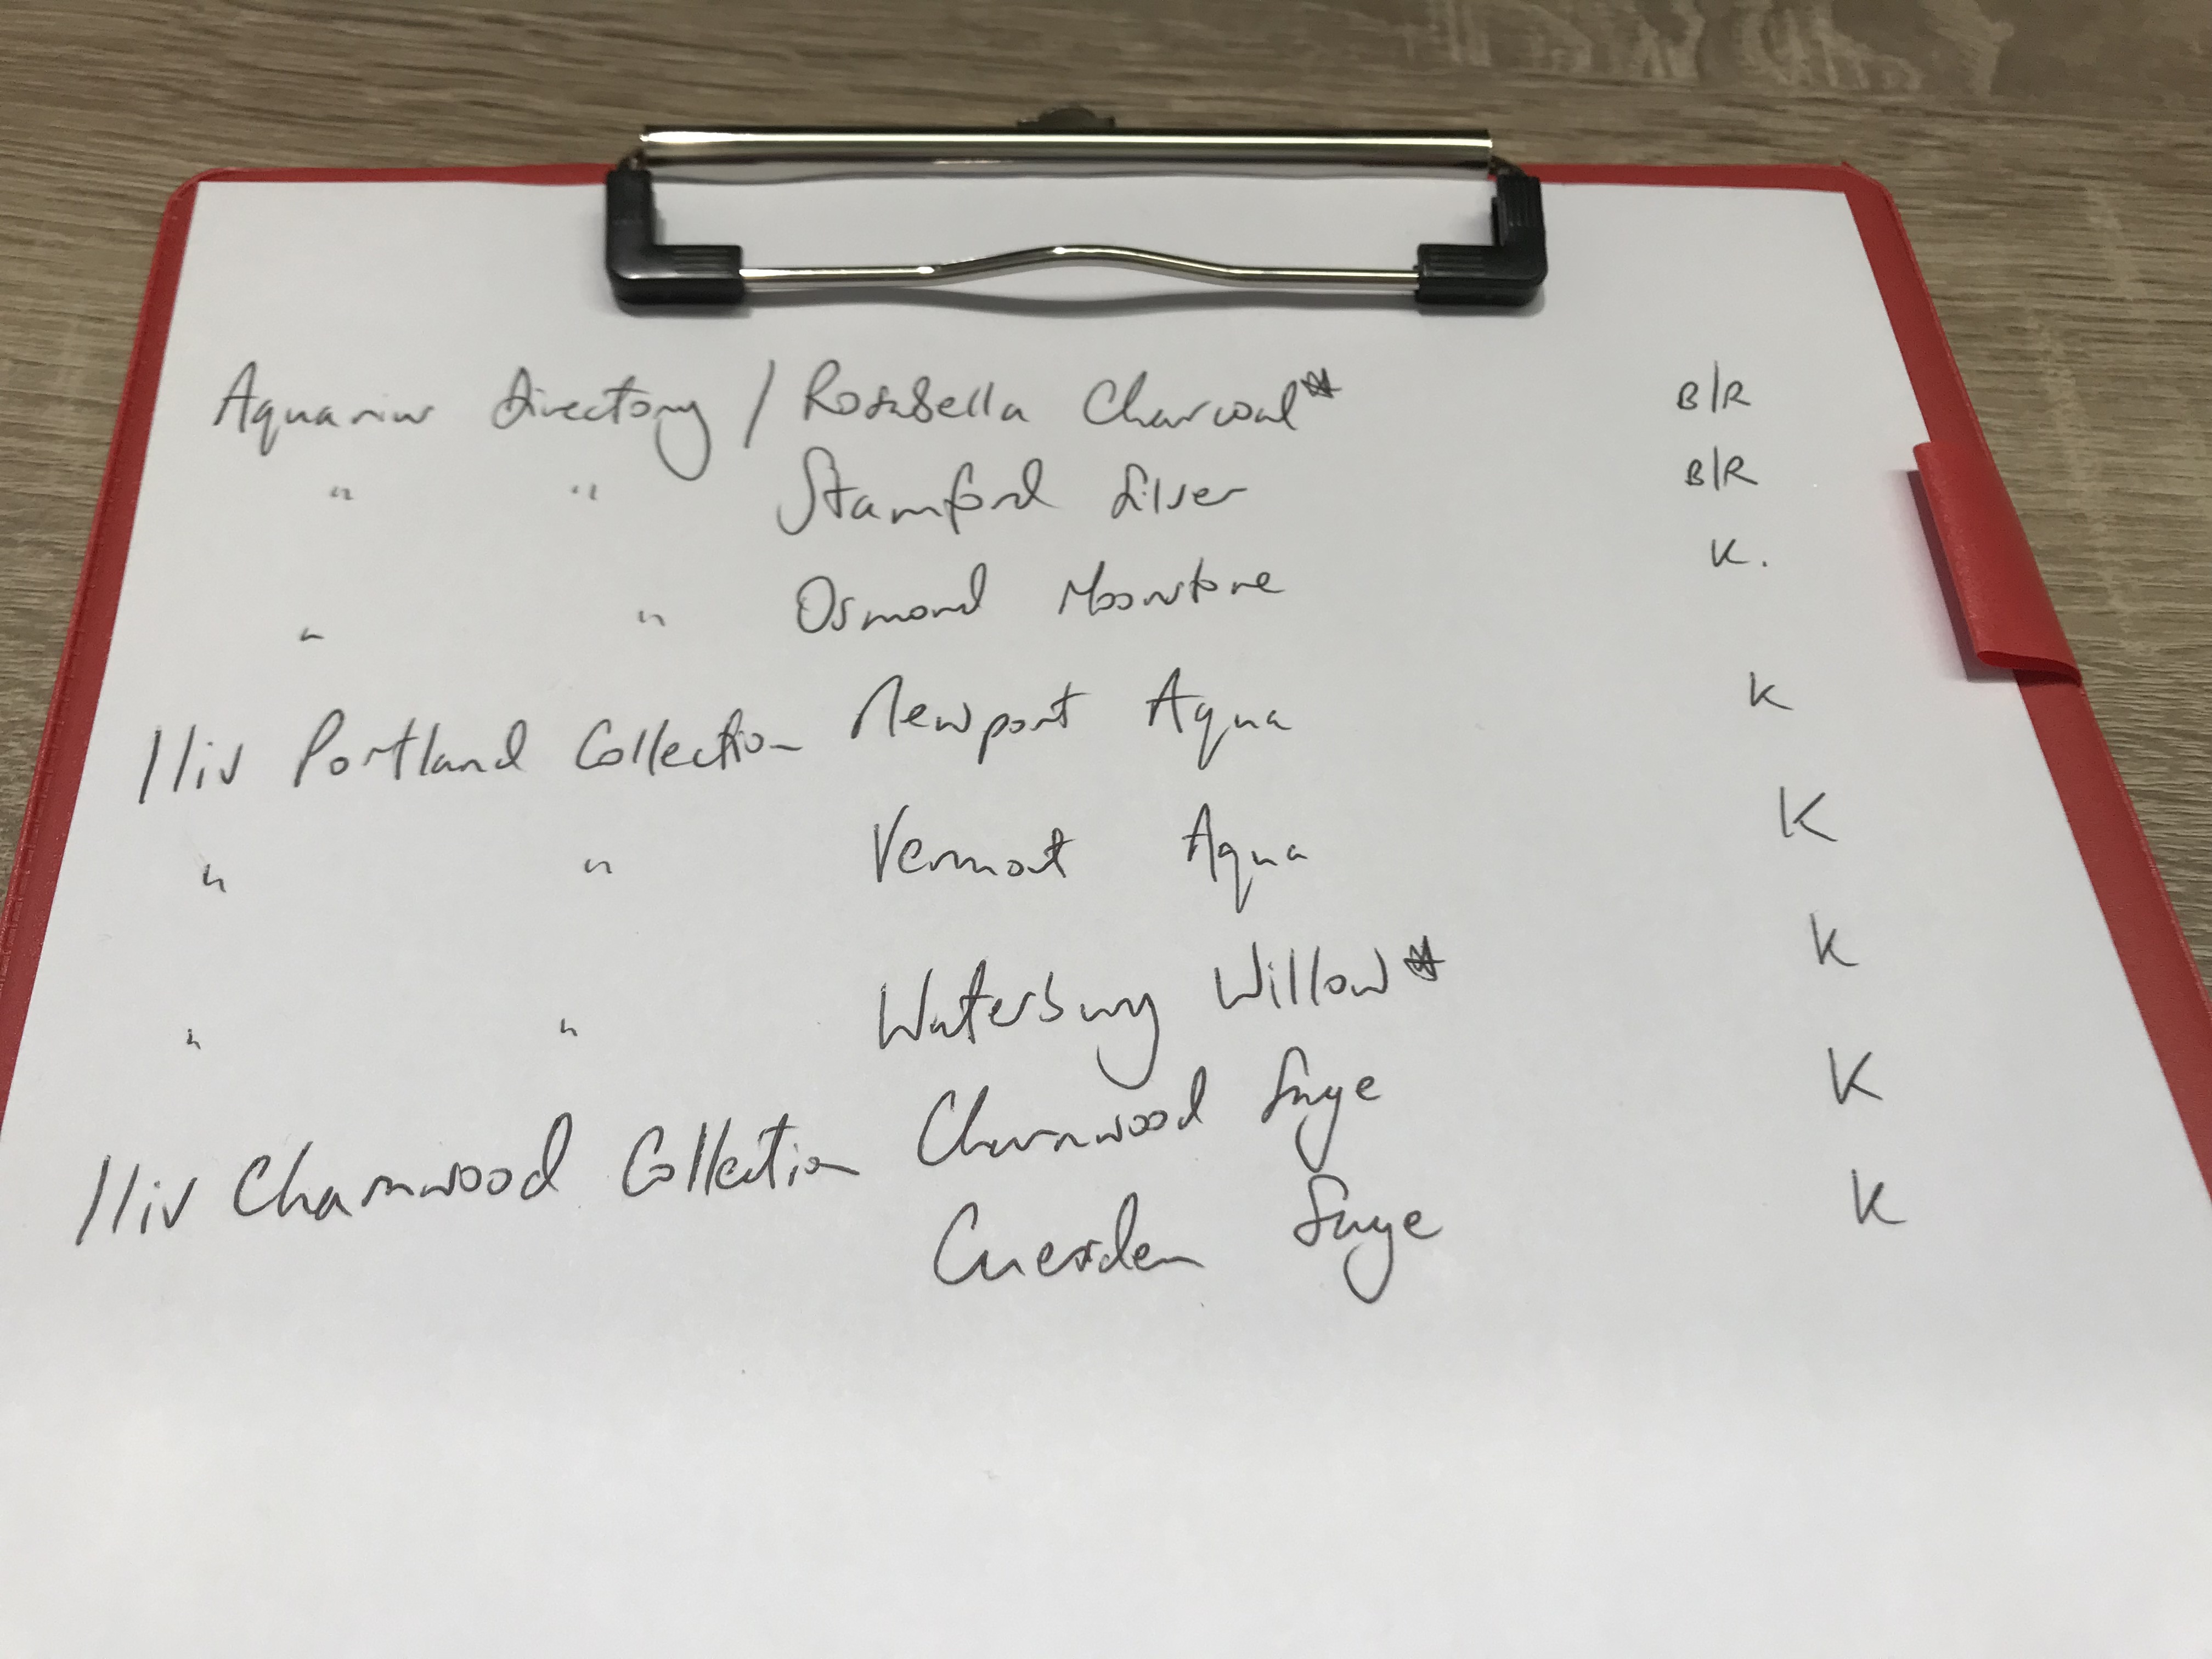 Aquarius Directory / Rosabella Charcoal* B/R
" " Stamford Silver B/R
" " Osmond Moonstone K.
Iliv Portland Collection Newport Aqua K
" " Vermont Aqua K
" " Waterbury Willow* K
Iliv Charnwood Collection Charnwood Sage K
Cuerden Sage K